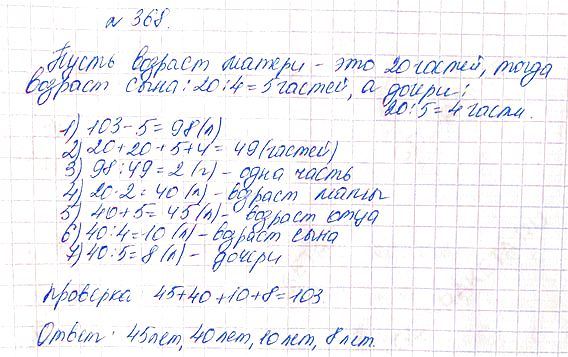 № 368.
Пусть возраст матери - это 20 частей, тогда
возраст сына: 20:4=5 частей, а дочери:
20:5=4 части.
1) 103-5=98(л)
2) 20+20+5+4=49(частей)
3) 98:49=2(г)- одна часть
4) 20·2=40(л)- возраст мамы
5) 40+5=45(л)- возраст отца
6) 40:4=10(л)- возраст сына
7) 40:5=8(л)- дочери
Проверка: 45+40+10+8=103
Ответ: 45лет, 40лет, 10лет, 8лет.